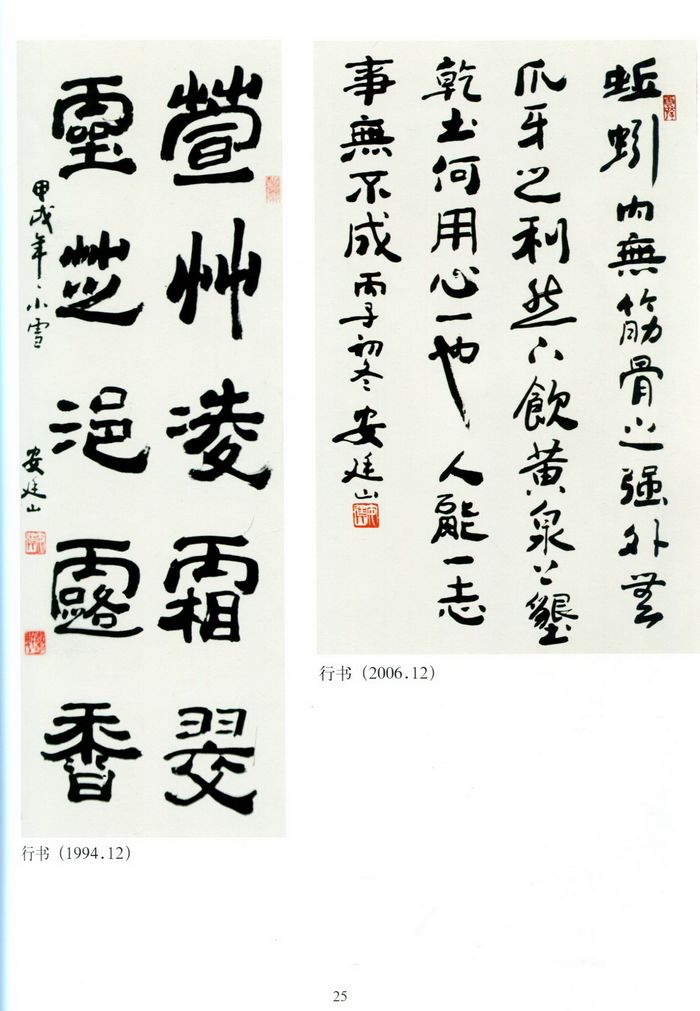 萱艸凌霜翠
靈芝浥露香
甲戌年小雪
安廷山
行书（1994.12）
蚯蚓内無筋骨之强外無
爪牙之利然下飲黄泉上墾
乾土何用心一也人能一志
事無不成丙子初冬安廷山
行书（2006.12）
25